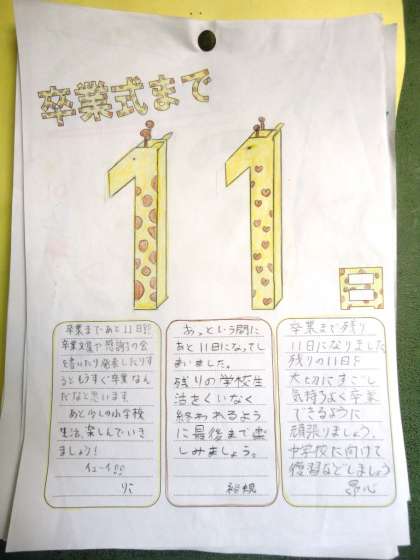 卒業式まで
11
日
卒業まであと11日!!
卒業文集や感謝の会
を書いたり発表したりす
るともうすぐ卒業なん
だなと思います。
あと少しの小学校
生活、楽しんでいき
ましょう!
イェーイ!!
あっという間に
あと11日になってし
まいました。
残りの学校生
活をくいなく
終われるよう
に最後まで楽
しみましょう。
卒業まで残り
11日になりました
残りの11日を
大切にすごし
気持ちよく卒業
できるように
頑張りましょう。
中学校に向けて
復習などしましょう
昂心